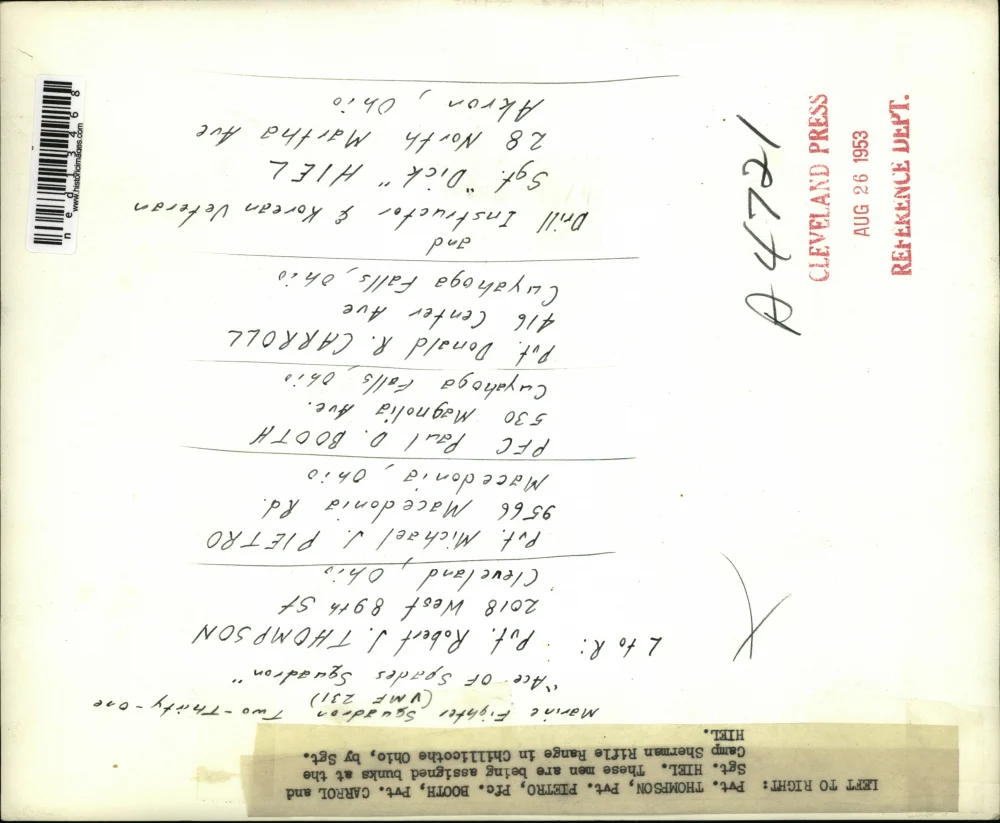 LEFT TO RIGHT: Pvt. THOMPSON, Pvt. PIETRO, Pfc. BOOTH, Pvt. CARROL and
Sgt. HIEL. These men are being assigned bunks at the
Camp Sherman Rifle Range in Chillicothe Ohio, by Sgt.
HIEL.
Marine Fighter Squadron Two-Thirty-One
(VMF 231)
"Ace OF Spades Squadron"
L to R: Pvt. Robert J. THOMPSON
2018 West 89th St
Cleveland, Ohio
Pvt. Michael J. PIETRO
9566 Macedonia Rd.
Macedonia, Ohio
PFC Paul D. BOOTH
530 Magnolia Ave.
Cuyahoga Falls, Ohio
Pvt. Donald R. CARROLL
416 Center Ave
Cuyahoga Falls, Ohio
and
Drill Instructor & Korean Veteran
Sgt. "Dick" HIEL
28 North Martha Ave
Akron, Ohio
A4721
CLEVELAND PRESS
AUG 26 1953
REFERENCE DEPT.
www.historicimages.com
ned13468